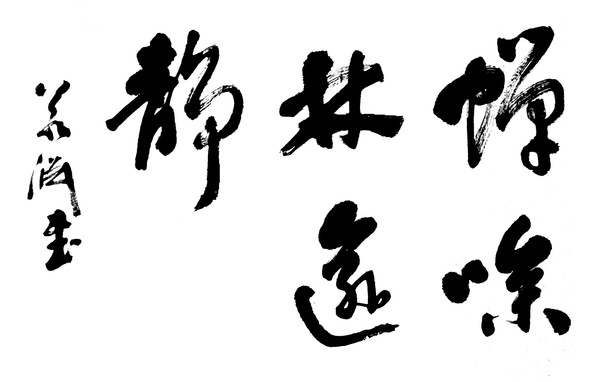 蝉噪
林逾
静